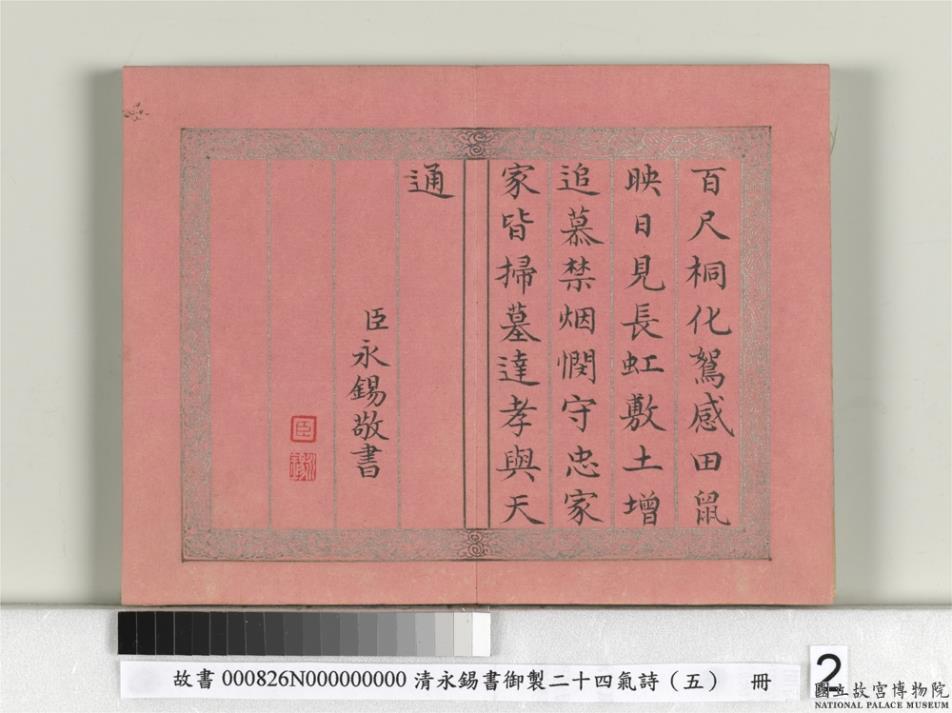 百尺桐化鴽感田鼠
映日見長虹敷土增
追慕禁烟憫守忠家
家皆掃墓達孝與天
通
臣永錫敬書
臣
故書 000826N000000000 清永錫書御製二十四氣詩（五） 冊
2
國立故宮博物院
NATIONAL PALACE MUSEUM